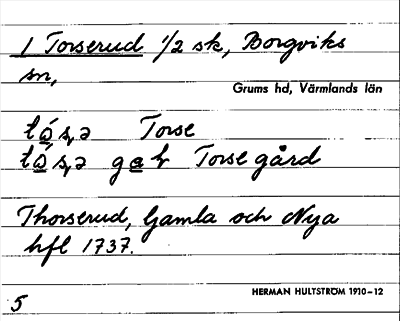 1 Torserud 1/2 sk, Borgviks
sn,
Grums hd, Värmlands län
Torse
Torsegård
Thorserud, Gamla och Nya
hfl 1737.
HERMAN HULTSTRÖM 1910–12
5